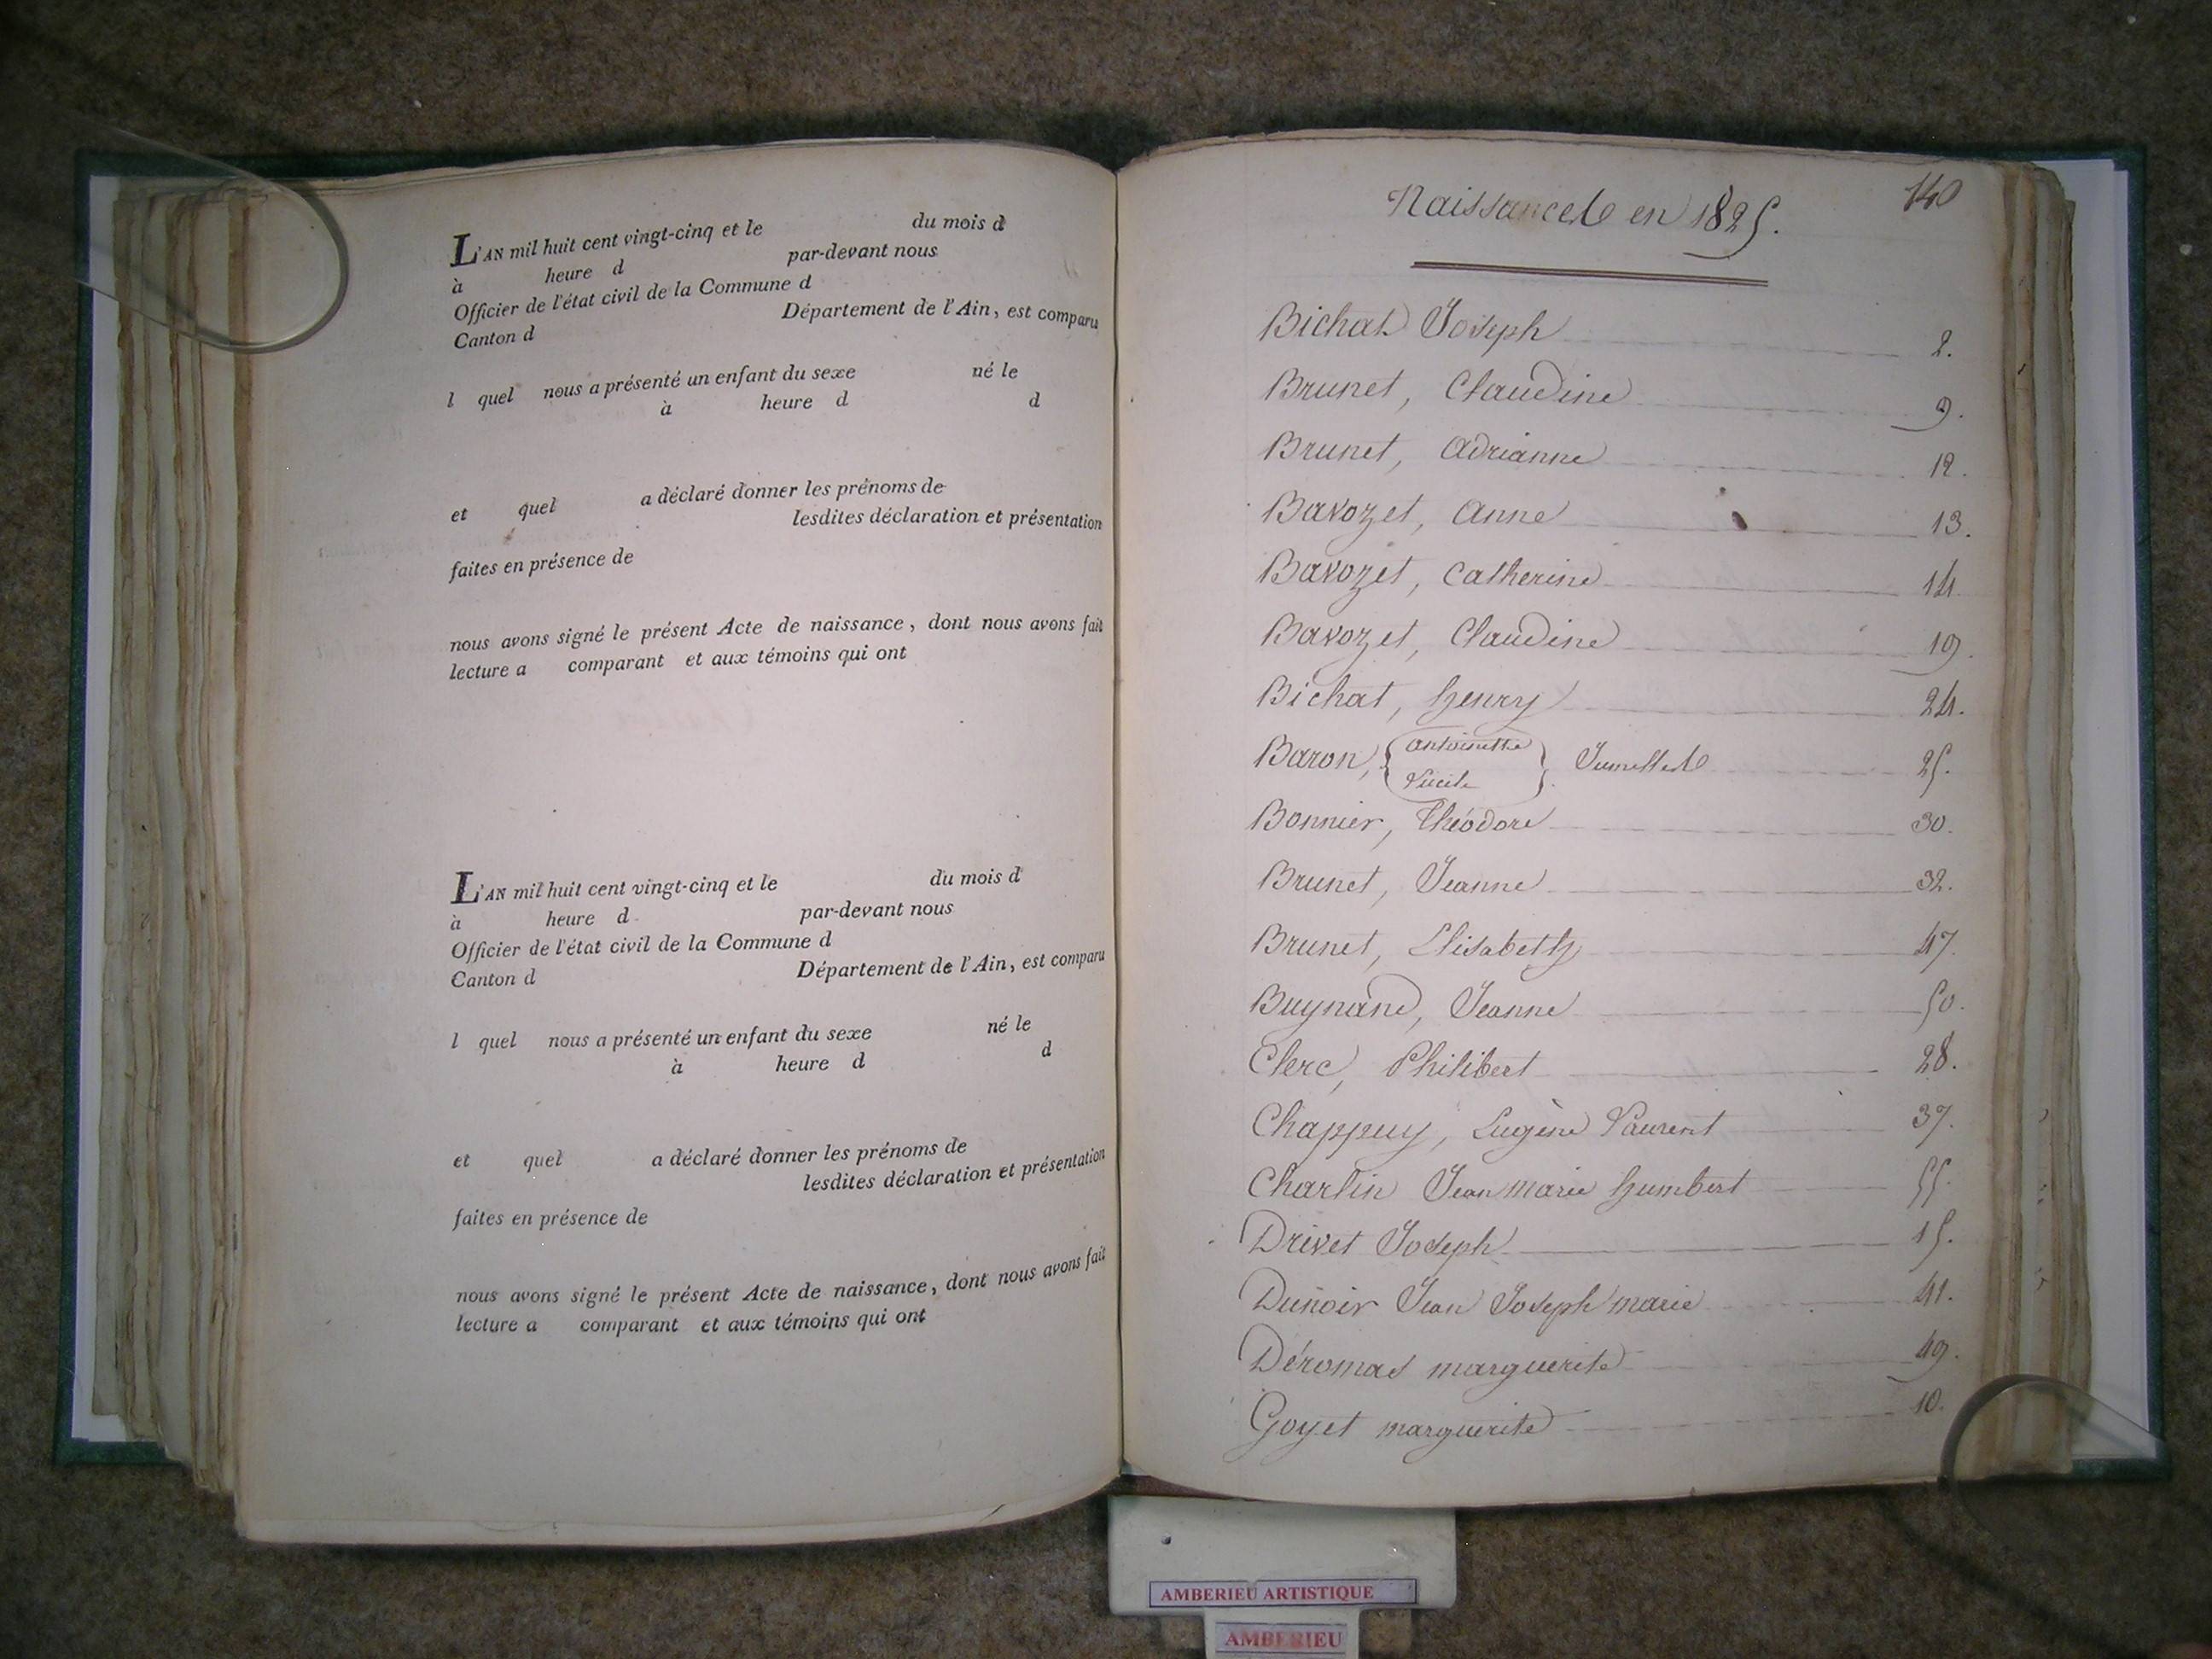 L'AN mil huit cent vingt-cinq et le du mois d
à heure d par-devant nous
Officier de l'état civil de la Commune d
Canton d Département de l'Ain, est comparu
l quel nous a présenté un enfant du sexe né le
à heure d d
et quel a déclaré donner les prénoms de
lesdites déclaration et présentation
faites en présence de
nous avons signé le présent Acte de naissance, dont nous avons fait
lecture a comparant et aux témoins qui ont
L'AN mil huit cent vingt-cinq et le du mois d
à heure d par-devant nous
Officier de l'état civil de la Commune d
Canton d Département de l'Ain, est comparu
l quel nous a présenté un enfant du sexe né le
à heure d d
et quel a déclaré donner les prénoms de
lesdites déclaration et présentation
faites en présence de
nous avons signé le présent Acte de naissance, dont nous avons fait
lecture a comparant et aux témoins qui ont
140
Naissances en 1825.
Bichat Joseph 2.
Brunet, Claudine 9.
Brunet, Adrianne 12.
Bavozet, Anne 13.
Bavozet, Catherine 14
Bavozet, Claudine 19.
Bichat, henry 24.
Baron, { Antoinette Lucile } Jumelles 25.
Bonnier, Théodore 30.
Brunet, Jeanne 32.
Brunet, Elisabeth 47.
Buynand, Jeanne 50.
Clerc, Philibert 28.
Chappuy, Eugène Laurent 37.
Charlin Jean marie humbert 55.
Drivet Joseph 15.
Dunoir Jean Joseph marie 41.
Déromas marguerite 49.
Goyet marguerite 10.
AMBERIEU ARTISTIQUE
AMBERIEU